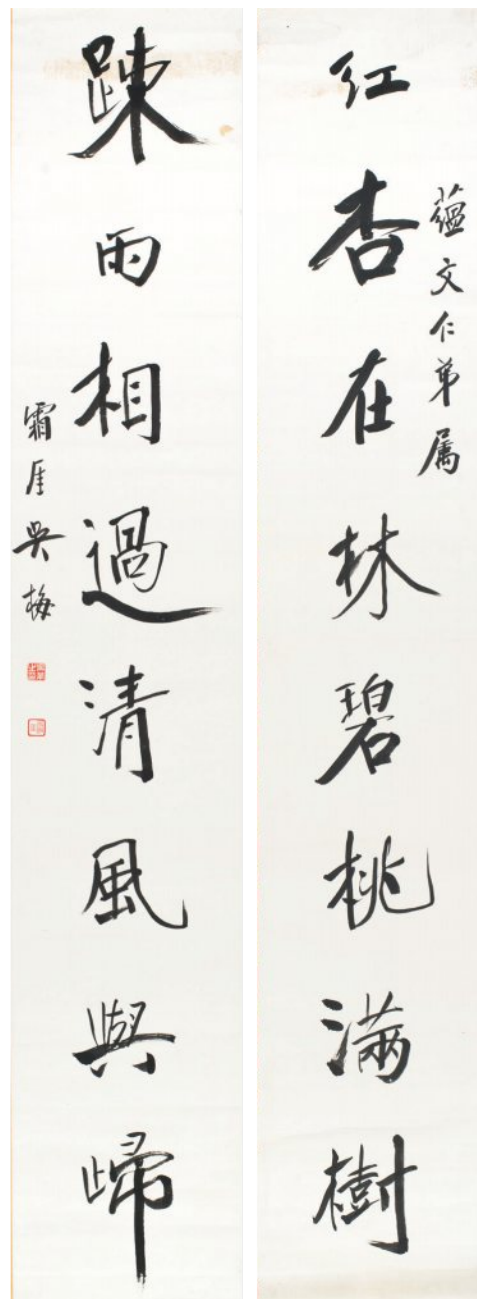 红杏在林碧桃满樹
蕴文仁弟属
踈雨相過清風與歸
霜厓吳梅